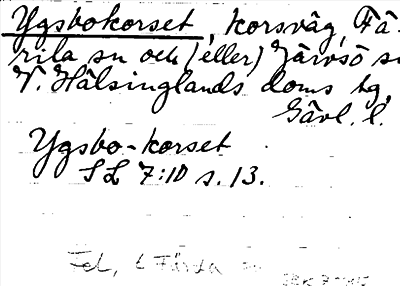 Ygsbokorset, korsväg, Fä-
rila sn och (eller) Järvsö sn
V. Hälsinglands doms hg,
Gävl. l.
Ygsbo-korset
SL 7:10 s. 13.
Fel, t Färila sn